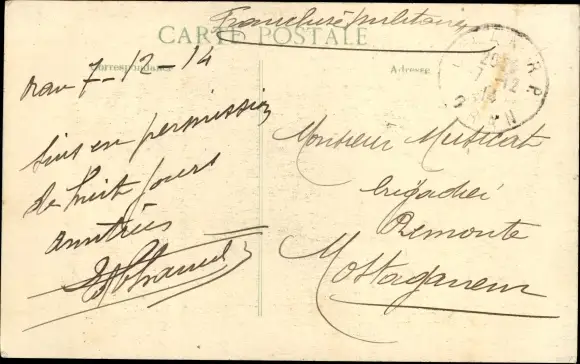 Franchise militaire
CARTE POSTALE
Correspondance
Adresse
Oran 7-12-14
suis en permission
de huit jours
amitiés
Monsieur Muscat
brigadier
Remonte
Mostaganem